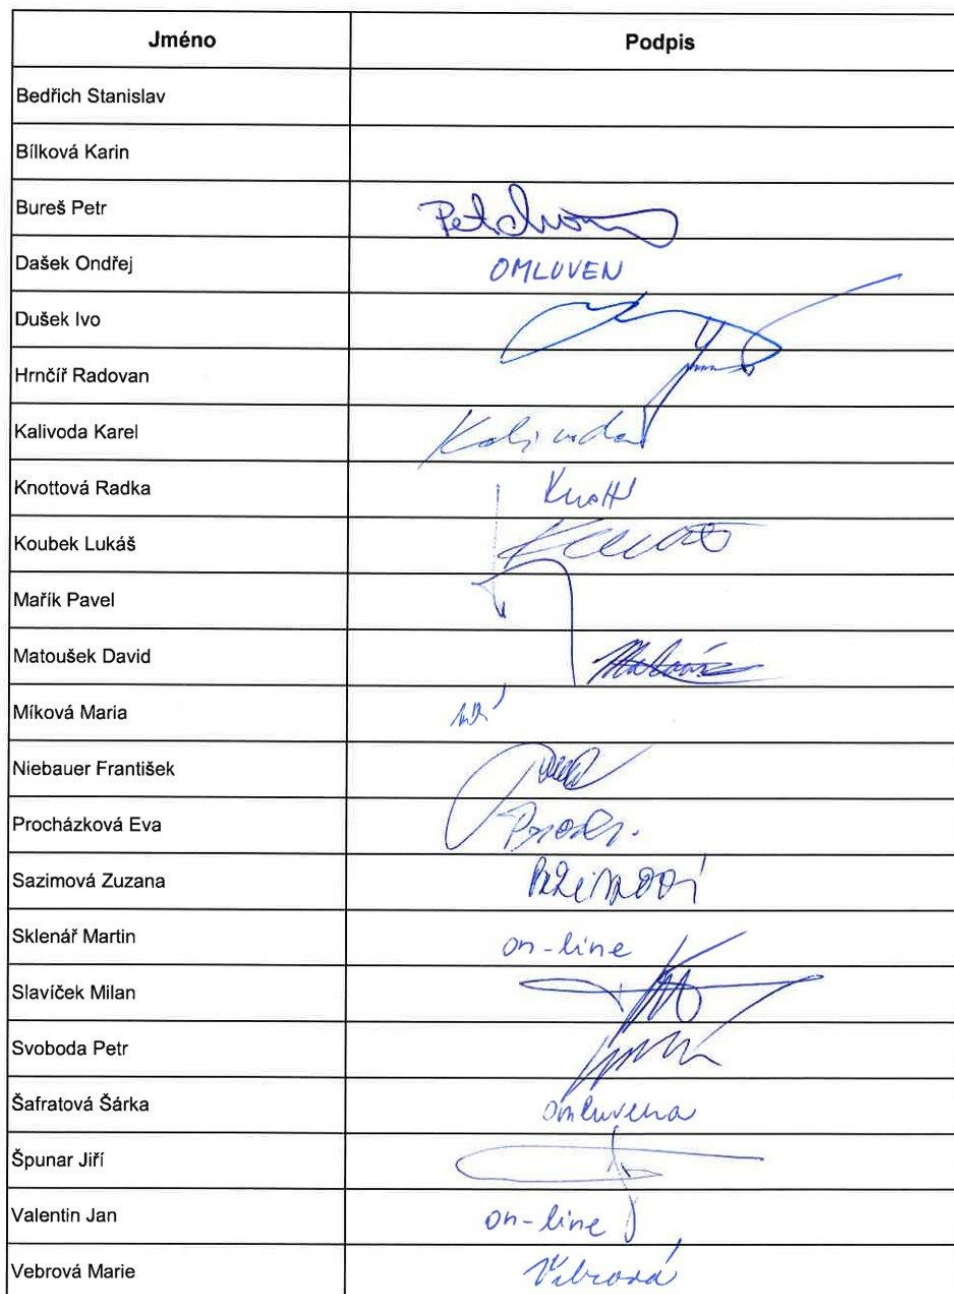 Jméno Podpis
Bedřich Stanislav
Bílková Karin
Bureš Petr
Dašek Ondřej OMLUVEN
Dušek Ivo
Hrnčíř Radovan
Kalivoda Karel Kalivoda
Knottová Radka
Koubek Lukáš
Mařík Pavel
Matoušek David
Míková Maria
Niebauer František
Procházková Eva
Sazimová Zuzana
Sklenář Martin on-line
Slavíček Milan
Svoboda Petr
Šafratová Šárka omluvena
Špunar Jiří
Valentin Jan on-line
Vebrová Marie Vebrová